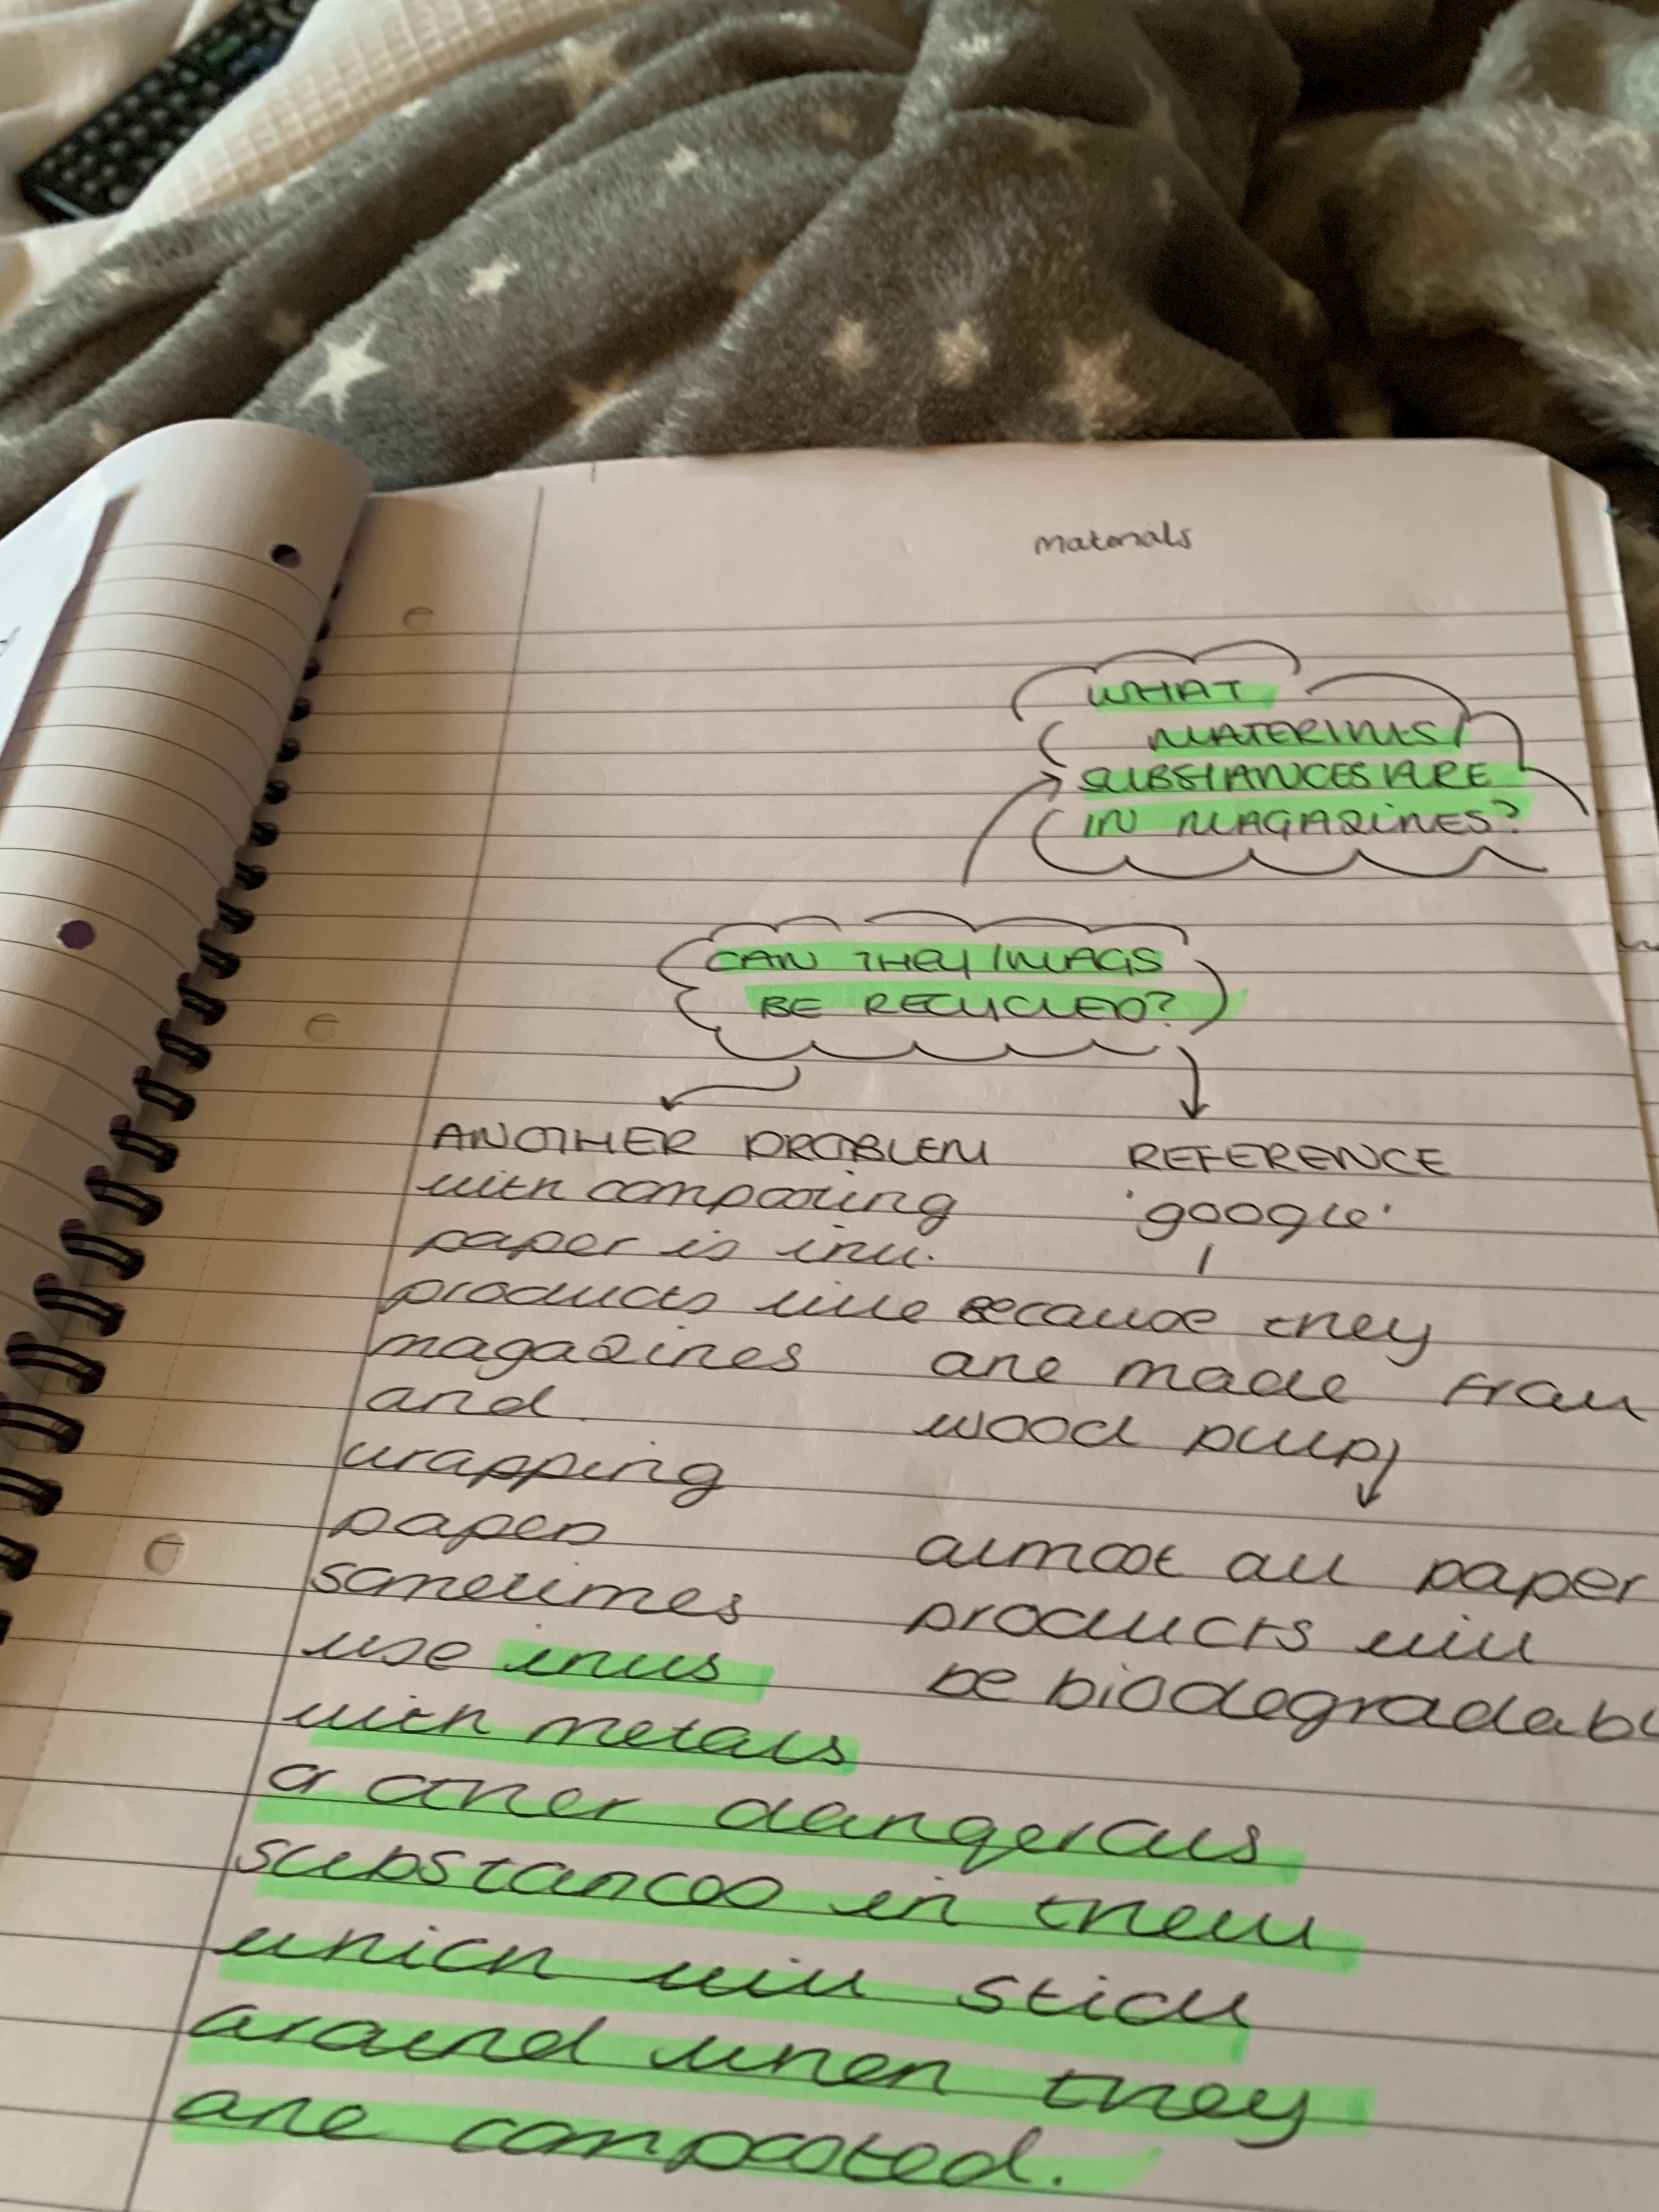 materials
WHAT
MATERIALS/
SUBSTANCES ARE
IN MAGAZINES?
CAN THEY/MAGS
BE RECYCLED?
ANOTHER PROBLEM
with composting
paper is ink.
products like
magazines
and
wrapping
paper
sometimes
use inks
with metals
or other dangerous
substances in them
which will stick
around when they
are composted.
REFERENCE
'google'
Because they
are made from
wood pulp
almost all paper
products will
be biodegradabl